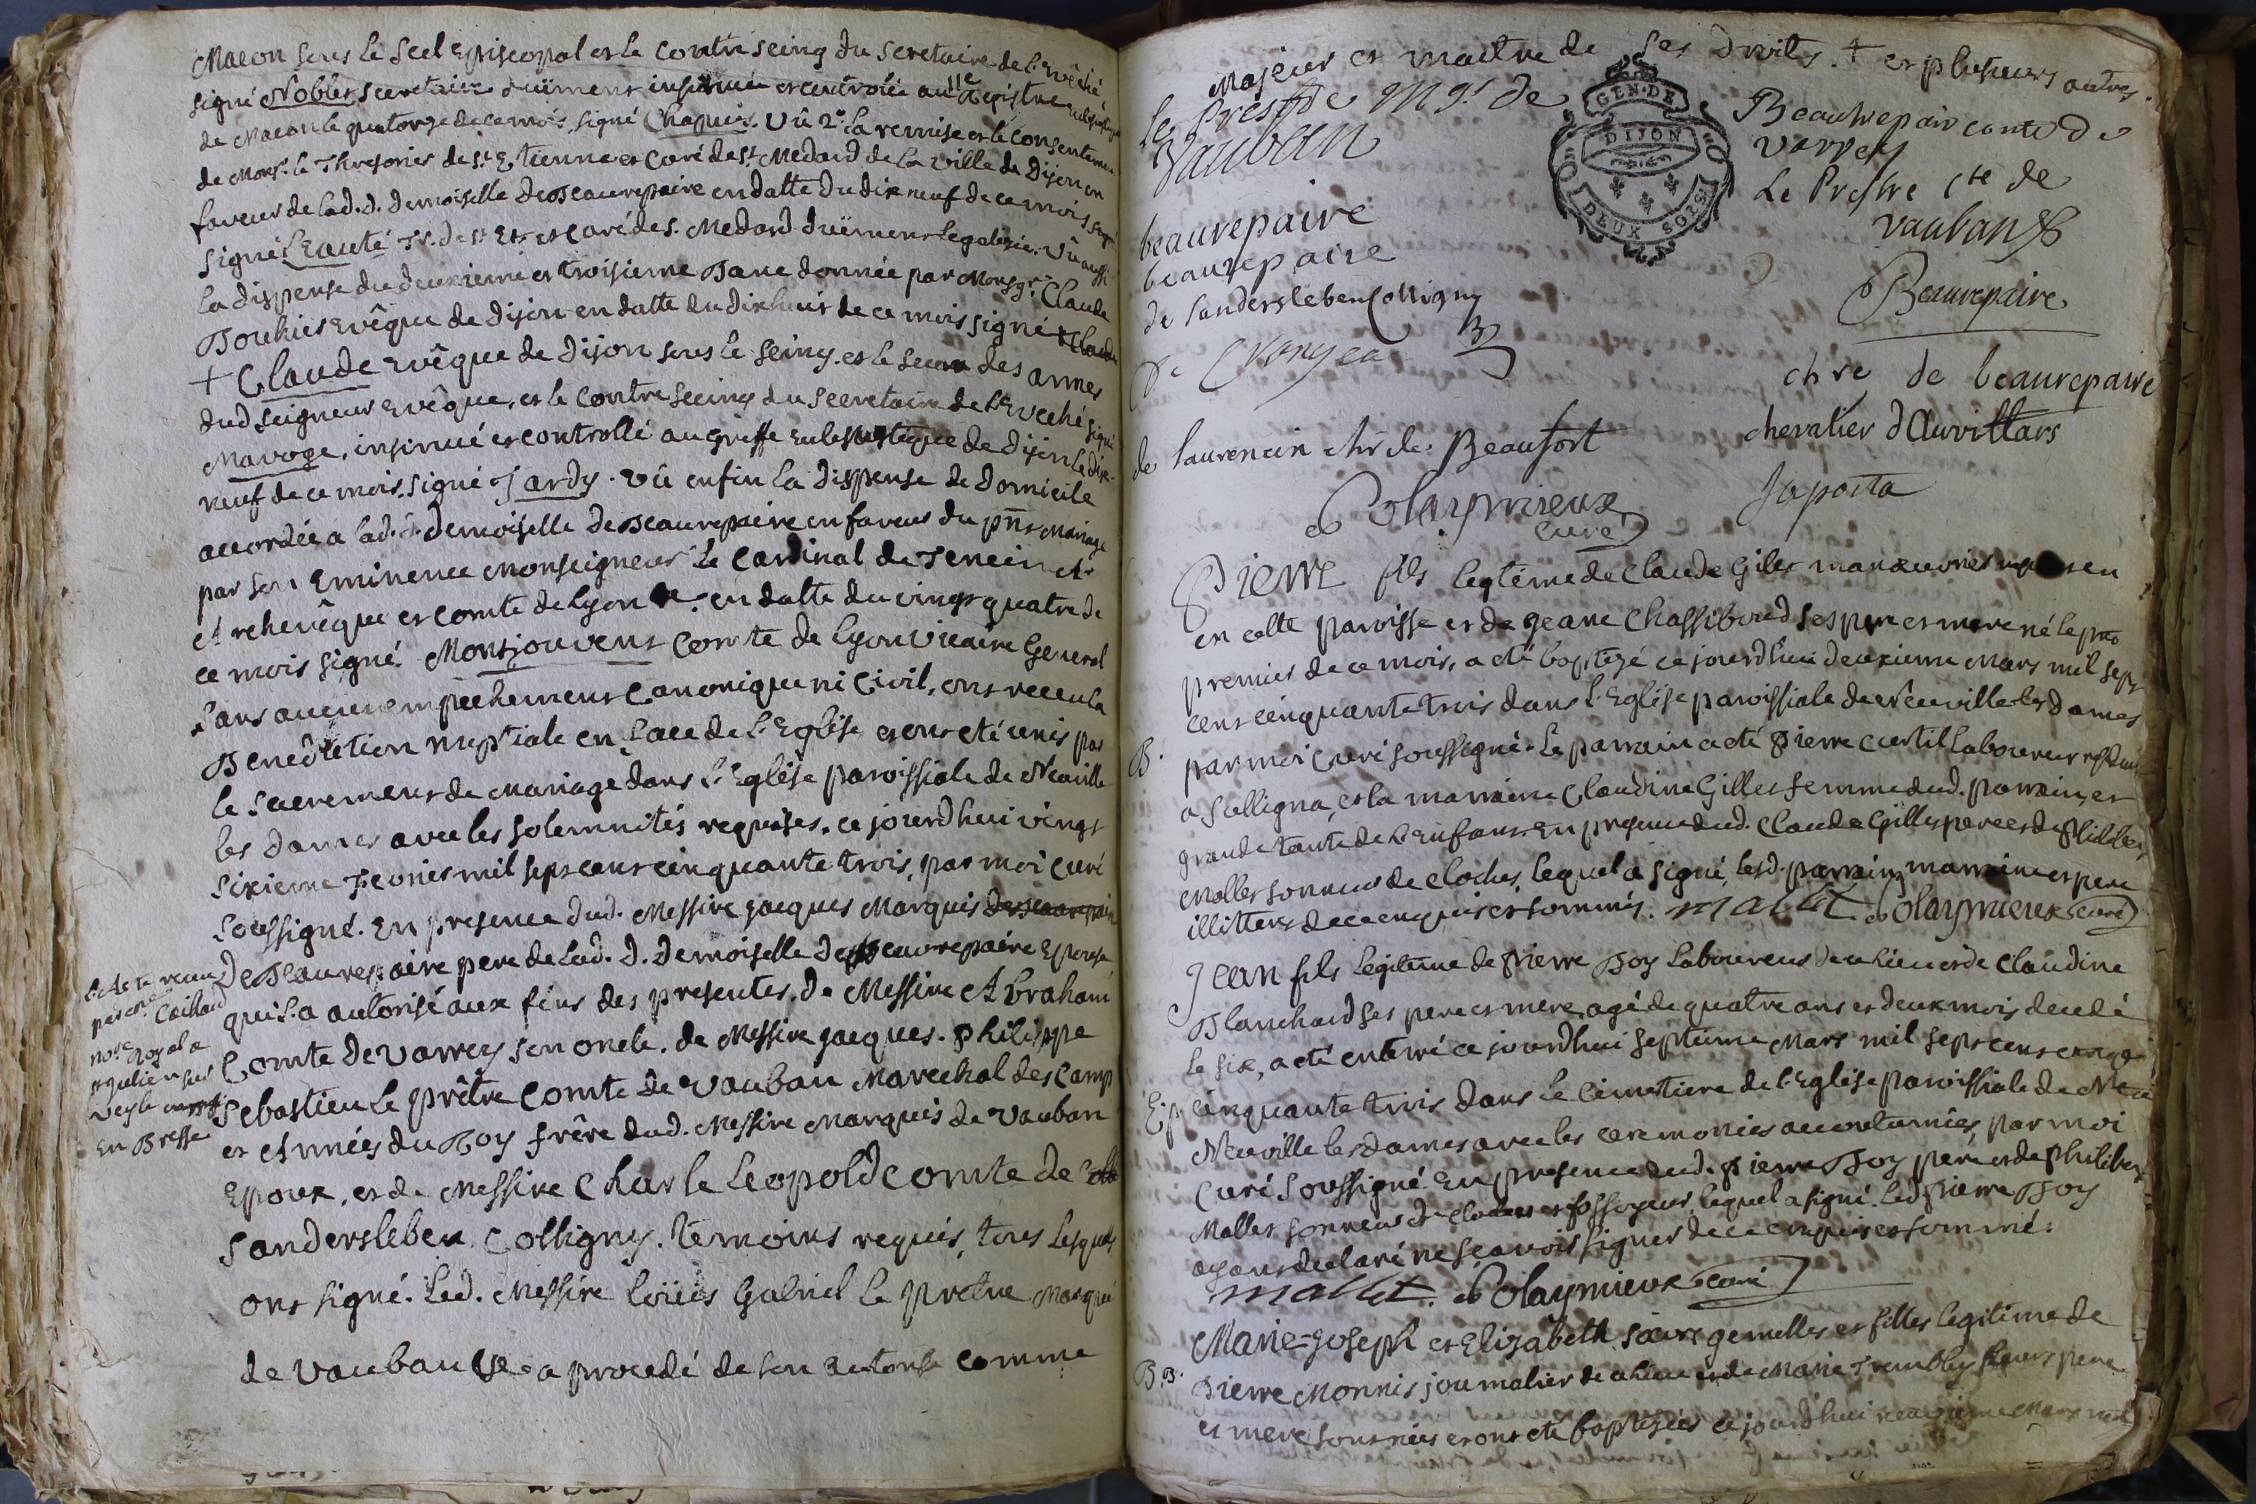 Macon sous le Scel Episcopal et le Contre seing du Secretaire de l'Evêché
signé Nobler Secretaire duëment insinuée et controlée au Registre
de Macon le quatorze de ce mois, signé Chapuis. Vû 2.° la remise et le Consentement
de Mons.r le Thresorier de s.t Etienne et Curé de s.t Medard de la ville de Dijon en
faveur de lad. d. demoiselle de Beaurepaire en datte du dix neuf de ce mois
signé L'Eauté Tr. de s.t Et. et Curé de s. Medard duëment legalizée. Vû aussi
la dispense du deuxieme et troisieme Banc donnée par Monsg.r Claude
Bouhier Evêque de Dijon en datte du dixhuit de ce mois signé
+ Claude Evêque de Dijon sous le seing et le sceau des armes
dud seigneur Evêque, et le Contre seeing du Secretaire de l'Eveché signé
Mavoge, insinué et controllé au Greffe Eclesiastique de Dijon le dix-
neuf de ce mois, signé Jardy. Vû enfin la dispense de domicile
accordée a lad. d. demoiselle de Beaurepaire en faveur du pnt Mariage
par son Eminence Monseigneur le Cardinal de Tencin Ar
Archevêque et Comte de Lyon en datte du vingt quatre de
ce mois signé Montjouvent Comte de Lyon Vicaire General
sans aucun empêchement Canonique ni Civil, ont receu la
Benediction nuptiale en face de l'Eglise et ont eté unis par
le Sacrement de Mariage dans l'Eglise paroissiale de Neuville
les Dames avec les solemnités requises, ce jourd'hui vingt
sixieme Fevrier mil sept cent cinquante trois, par moi Curé
soussigné. En presence dud. Messire Jacques Marquis
de Beaurepaire pere de lad. d. Demoiselle de Beaurepaire Epouse
qui l'a autorisé aux fins des presentes, de Messire Abraham
Comte de Varrey son oncle, de Messire Jacques. Philippe
Sebastien Le Prêtre Comte de Vauban Marechal des Camp
et Armées du Roy frêre dud. Messire Marquis de Vauban
Epoux, et de Messire Charle Leopold Comte de
Sandersleben Colligny. Témoins requis, tous Lesquels
ont signé. Led. Messire Loüis Gabriel Le Prêtre Marquis
de Vauban a procedé de son autorité comme
l'Acte receu
par M.e Caillaud
no.re Royal a
Veyle
En Bresse
Majeur et maître de Ses Droits. + et plusieurs autres.
Le Prestre M.is de
Vauban
GEN. DE
DIJON
DEUX SOLS
Beaurepair comte de
Varrey
Le Prestre Cte de
Vauban
beaurepaire
beaurepaire
de Sandersleben Colligny
Beaurepaire
chre de beaurepaire
chevalier d'Auvillars
de laurencin chr de Beaufort
Japosta
Olaymieux
curé
Pierre fils legitime de Claude Giles manœuvrier
en cette paroisse et de Jeane Chassiboud ses pere et mere né le
premier de ce mois, a eté baptizé ce jourd'hui deuxieme Mars mil sept
cent cinquante trois dans l'Eglise paroissiale de Neuville les Dames
B. par moi Curé soussigné. Le parrain a eté Pierre Curtil laboureur
a Sulligna, et la marraine Claudine Gilles femme dud. parrain, et
grande tante de l'Enfant. En presence dud. Claude Gilles pere et de Philibert
Mollet sonneur de cloches, lequel a signé, lesd. parrain, marraine et pere
illitterés de ce enquis et sommés. mallet Olaymieux curé
Jean fils Legitime de Pierre Roy Laboureur de ce lieu et de Claudine
Blanchard ses pere et mere, agé de quatre ans et deux mois decedé
le six, a eté enterré ce jourd'hui septieme Mars mil sept cent
cinquante trois dans le Cimetiere de l'Eglise paroissiale de
Neuville les Dames avec les ceremonies accoutumées, par moi
Curé Soussigné. En presence dud. Pierre Roy pere et de Philibert
Mallet sonneur de cloches et fossoyeur, lequel a signé. Led Pierre Roy
ayant declaré ne sçavoir signer de ce enquis et sommé.
mallet. Olaymieux curé
Marie-Joseph et Elizabeth sœurs gemelles et filles legitime de
B.B. Pierre Monnis journalier de ce lieu et de Marie Trembley leurs pere
et mere sont nées et ont eté baptizées ce jourd'hui neuvieme Mars mil